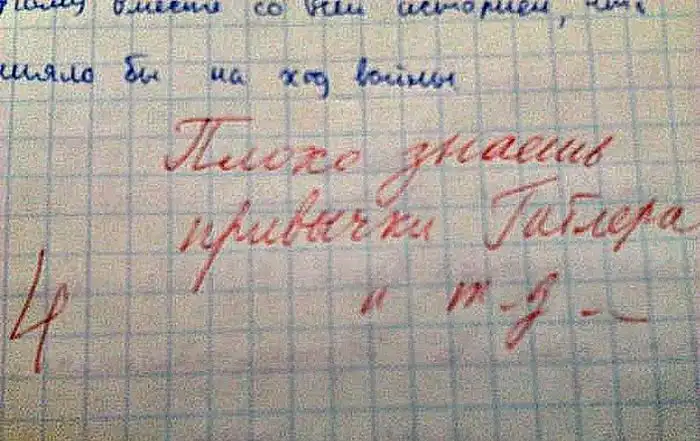 вместе со всей историей,
шяло бы на ход войны
Плохо знаешь
привычки Гатлера
4 и т-д--